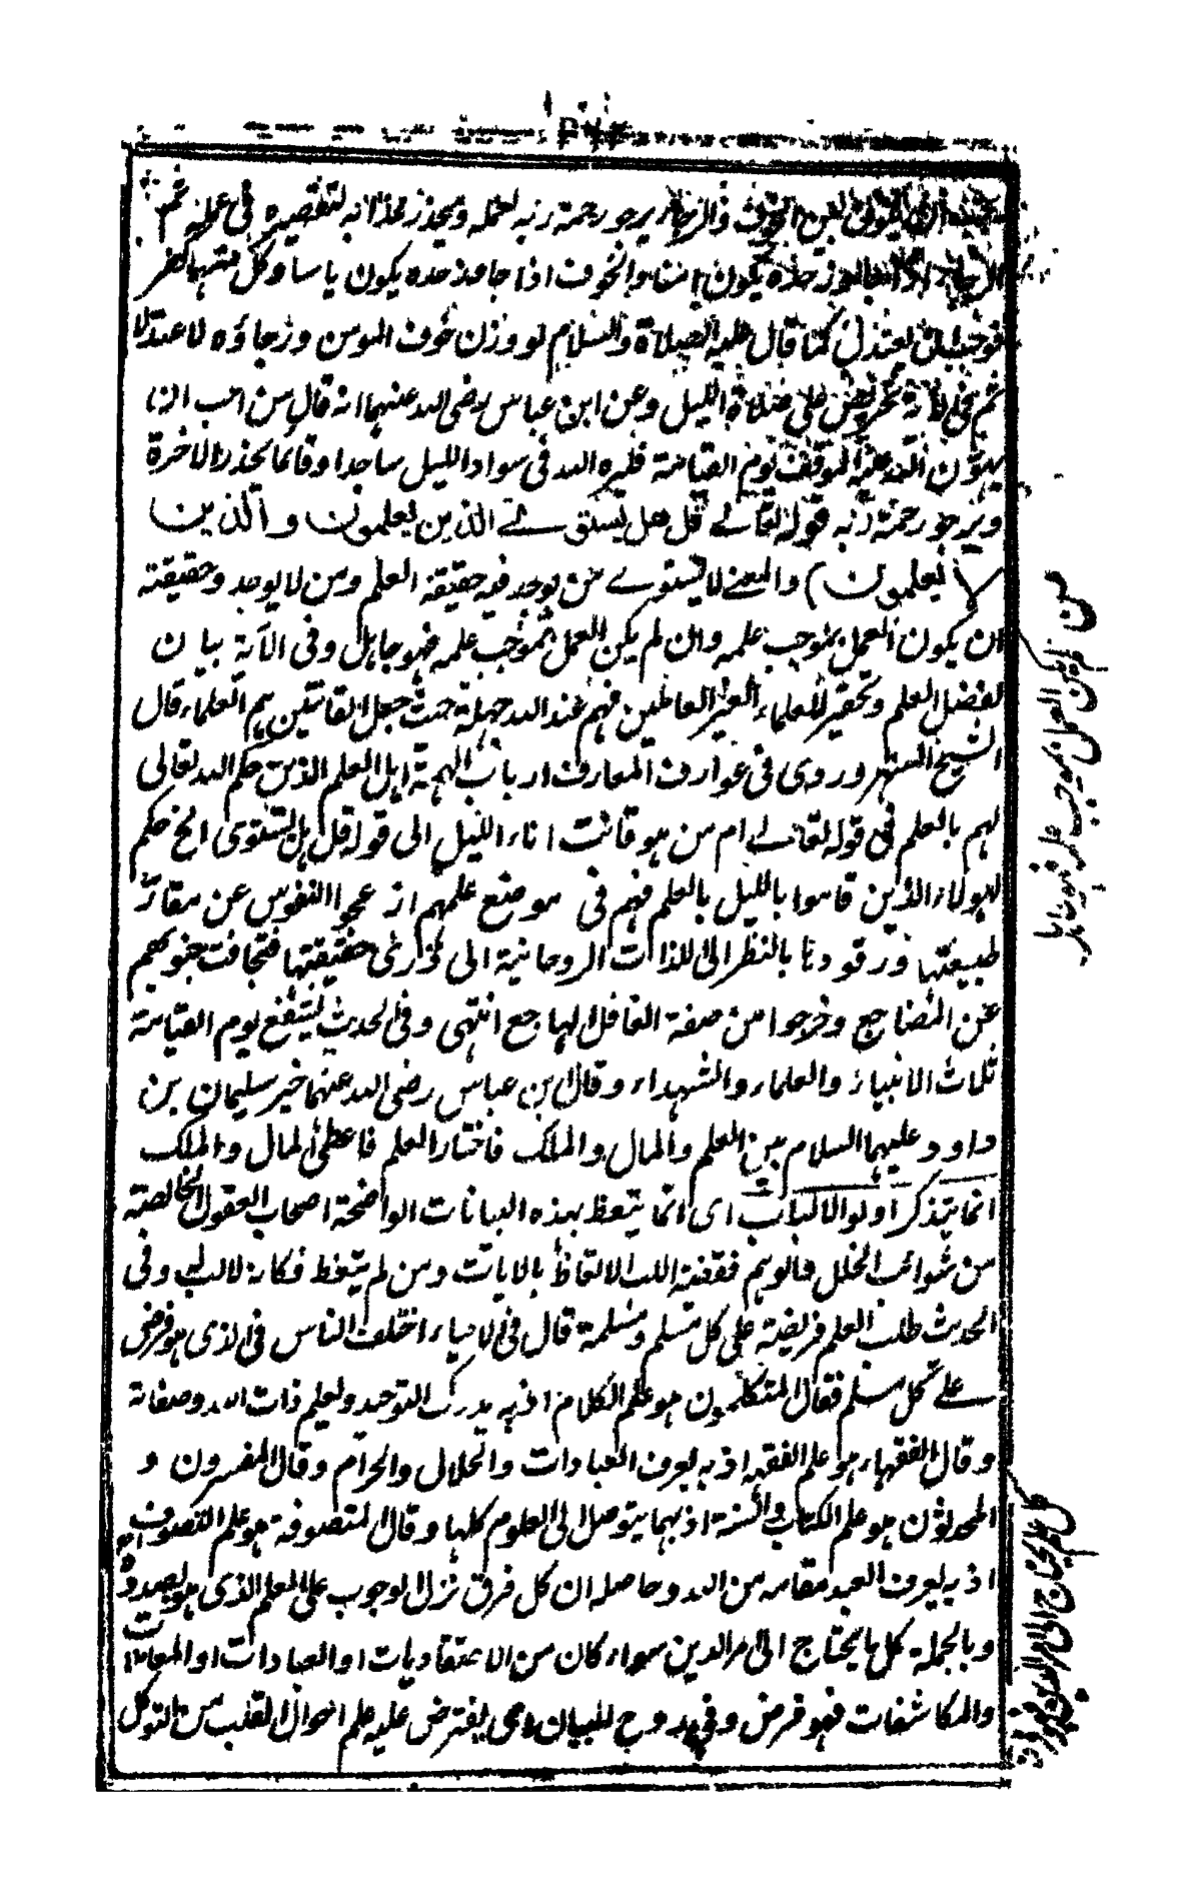 يجب ان يكون بين الخوف والرجاء يرجو رحمة ربه لعمله ويحذر عذابه لتقصيره فى عمله ثم
الرجاء اذا جاوز حده يكون امنا والخوف اذا جاوز حده يكون ياسا وكل منتهما كفر
فوجب ان يعتدل كما قال عليه الصلاة والسلام لو وزن خوف المومن ورجاؤه لاعتدلا
ثم فى الآية تحريض على صلاة الليل وعن ابن عباس رضى الله عنهما انه قال من احب ان
يهون الله عليه الموقف يوم القيامة فليره الله فى سواد الليل ساجدا وقائما يحذر الآخرة
ويرجو رحمة ربه قوله تعالى قل هل يستوى الذين يعلمون والذين
لا يعلمون) والمعنے لا يستوے من يوجد فيه حقيقة العلم ومن لا يوجد وحقيقته
ان يكون العمل بموجب علمه وان لم يكن العمل بموجب علمه فهو جاهل وفى الآية بيان
لفضل العلم وتحقير للعلماء الغير العاملين فهم عند الله جهلة حيث جعل القانتين هم العلماء قال
الشيخ السهروردى فى عوارف المعارف ارباب الهمة اهل العلم الذين حكم الله تعالى
لهم بالعلم فى قوله تعالے ام من هو قانت اناء الليل الى قوله قل هل يستوى الخ حكم
لهولاء الذين قاموا بالليل بالعلم فهم فى موضع علمهم ازعجوا النفوس عن مقار
طبيعتها ورقودنا بالنظر الى اللذات الروحانية الى ذرى حقيقتها فتجافت جنوبهم
عن المضاجع وخرجوا من صفة الغافل الهاجع انتهى وفى الحديث يشفع يوم القيامة
ثلاث الانبياء والعلماء والشهداء وقال ابن عباس رضى الله عنهما خير سليمان بن
داود عليهما السلام بين العلم والمال والملك فاختار العلم فاعطى المال والملك
انما يتذكر اولوا الالباب اى انما يتعظ بهذه البيانات الواضحة اصحاب العقول الخالصة
من شوائب الخلل والوهم فقضية اللب الاتعاظ بالايات ومن لم يتعظ فكانه لا لب له وفى
الحديث طلب العلم فريضة على كل مسلم ومسلمة قال فى الاحياء اختلف الناس فى الذى هو فرض
علے كل مسلم فقال المتكلمون هو علم الكلام اذ به يدرك التوحيد ويعلم ذات الله وصفاته
وقال الفقهاء هو علم الفقه اذ به يعرف العبادات والحلال والحرام وقال المفسرون و
المحدثون هو علم الكتاب والسنة اذ بهما يتوصل الى العلوم كلها وقال المتصوفة هو علم التصوف
اذ به يعرف العبد مقامه من الله وحاصله ان كل فرق نزل الوجوب على العلم الذى هو بصدده
وبالجملة كل ما يحتاج الى امر الدين سواء كان من الاعتقاديات او العبادات او المعاملات
والمكاشفات فهو فرض وفى روح البيان وهى يفترض عليه علم احوال القلب من التوكل
من لم يكن العمل بموجب علمه فهو جاهل
كل علم يحتاج الى امر الدين فهو فرض